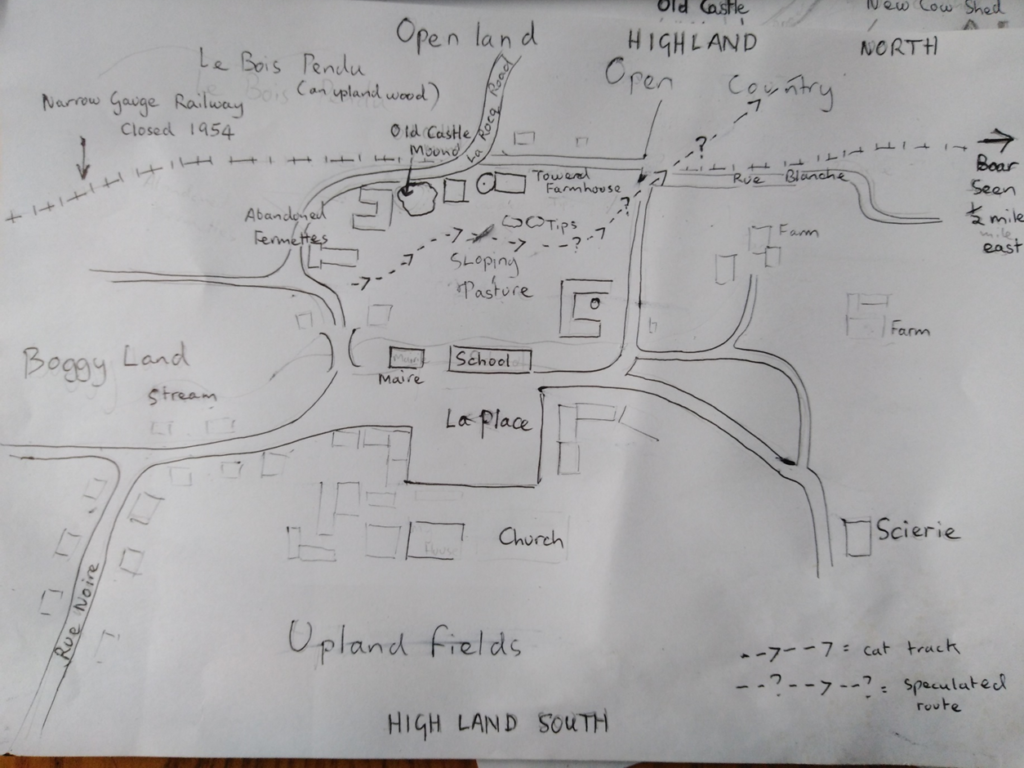 Old Castle
New Cow Shed
Open land
HIGHLAND
NORTH
Le Bois Pendu
(an upland wood)
Open
Country
Narrow Gauge Railway
Closed 1954
Old Castle
Mound
La Rocq Road
Towerd
Farmhouse
Rue Blanche
Boar
Seen
1/2 mile
mile
east
Abandoned
Fermettes
Tips
Sloping
Pasture
Farm
Farm
Boggy Land
Stream
Maire
School
La Place
Church
Scierie
Rue Noire
Upland fields
HIGH LAND SOUTH
= cat track
? ? = speculated
route